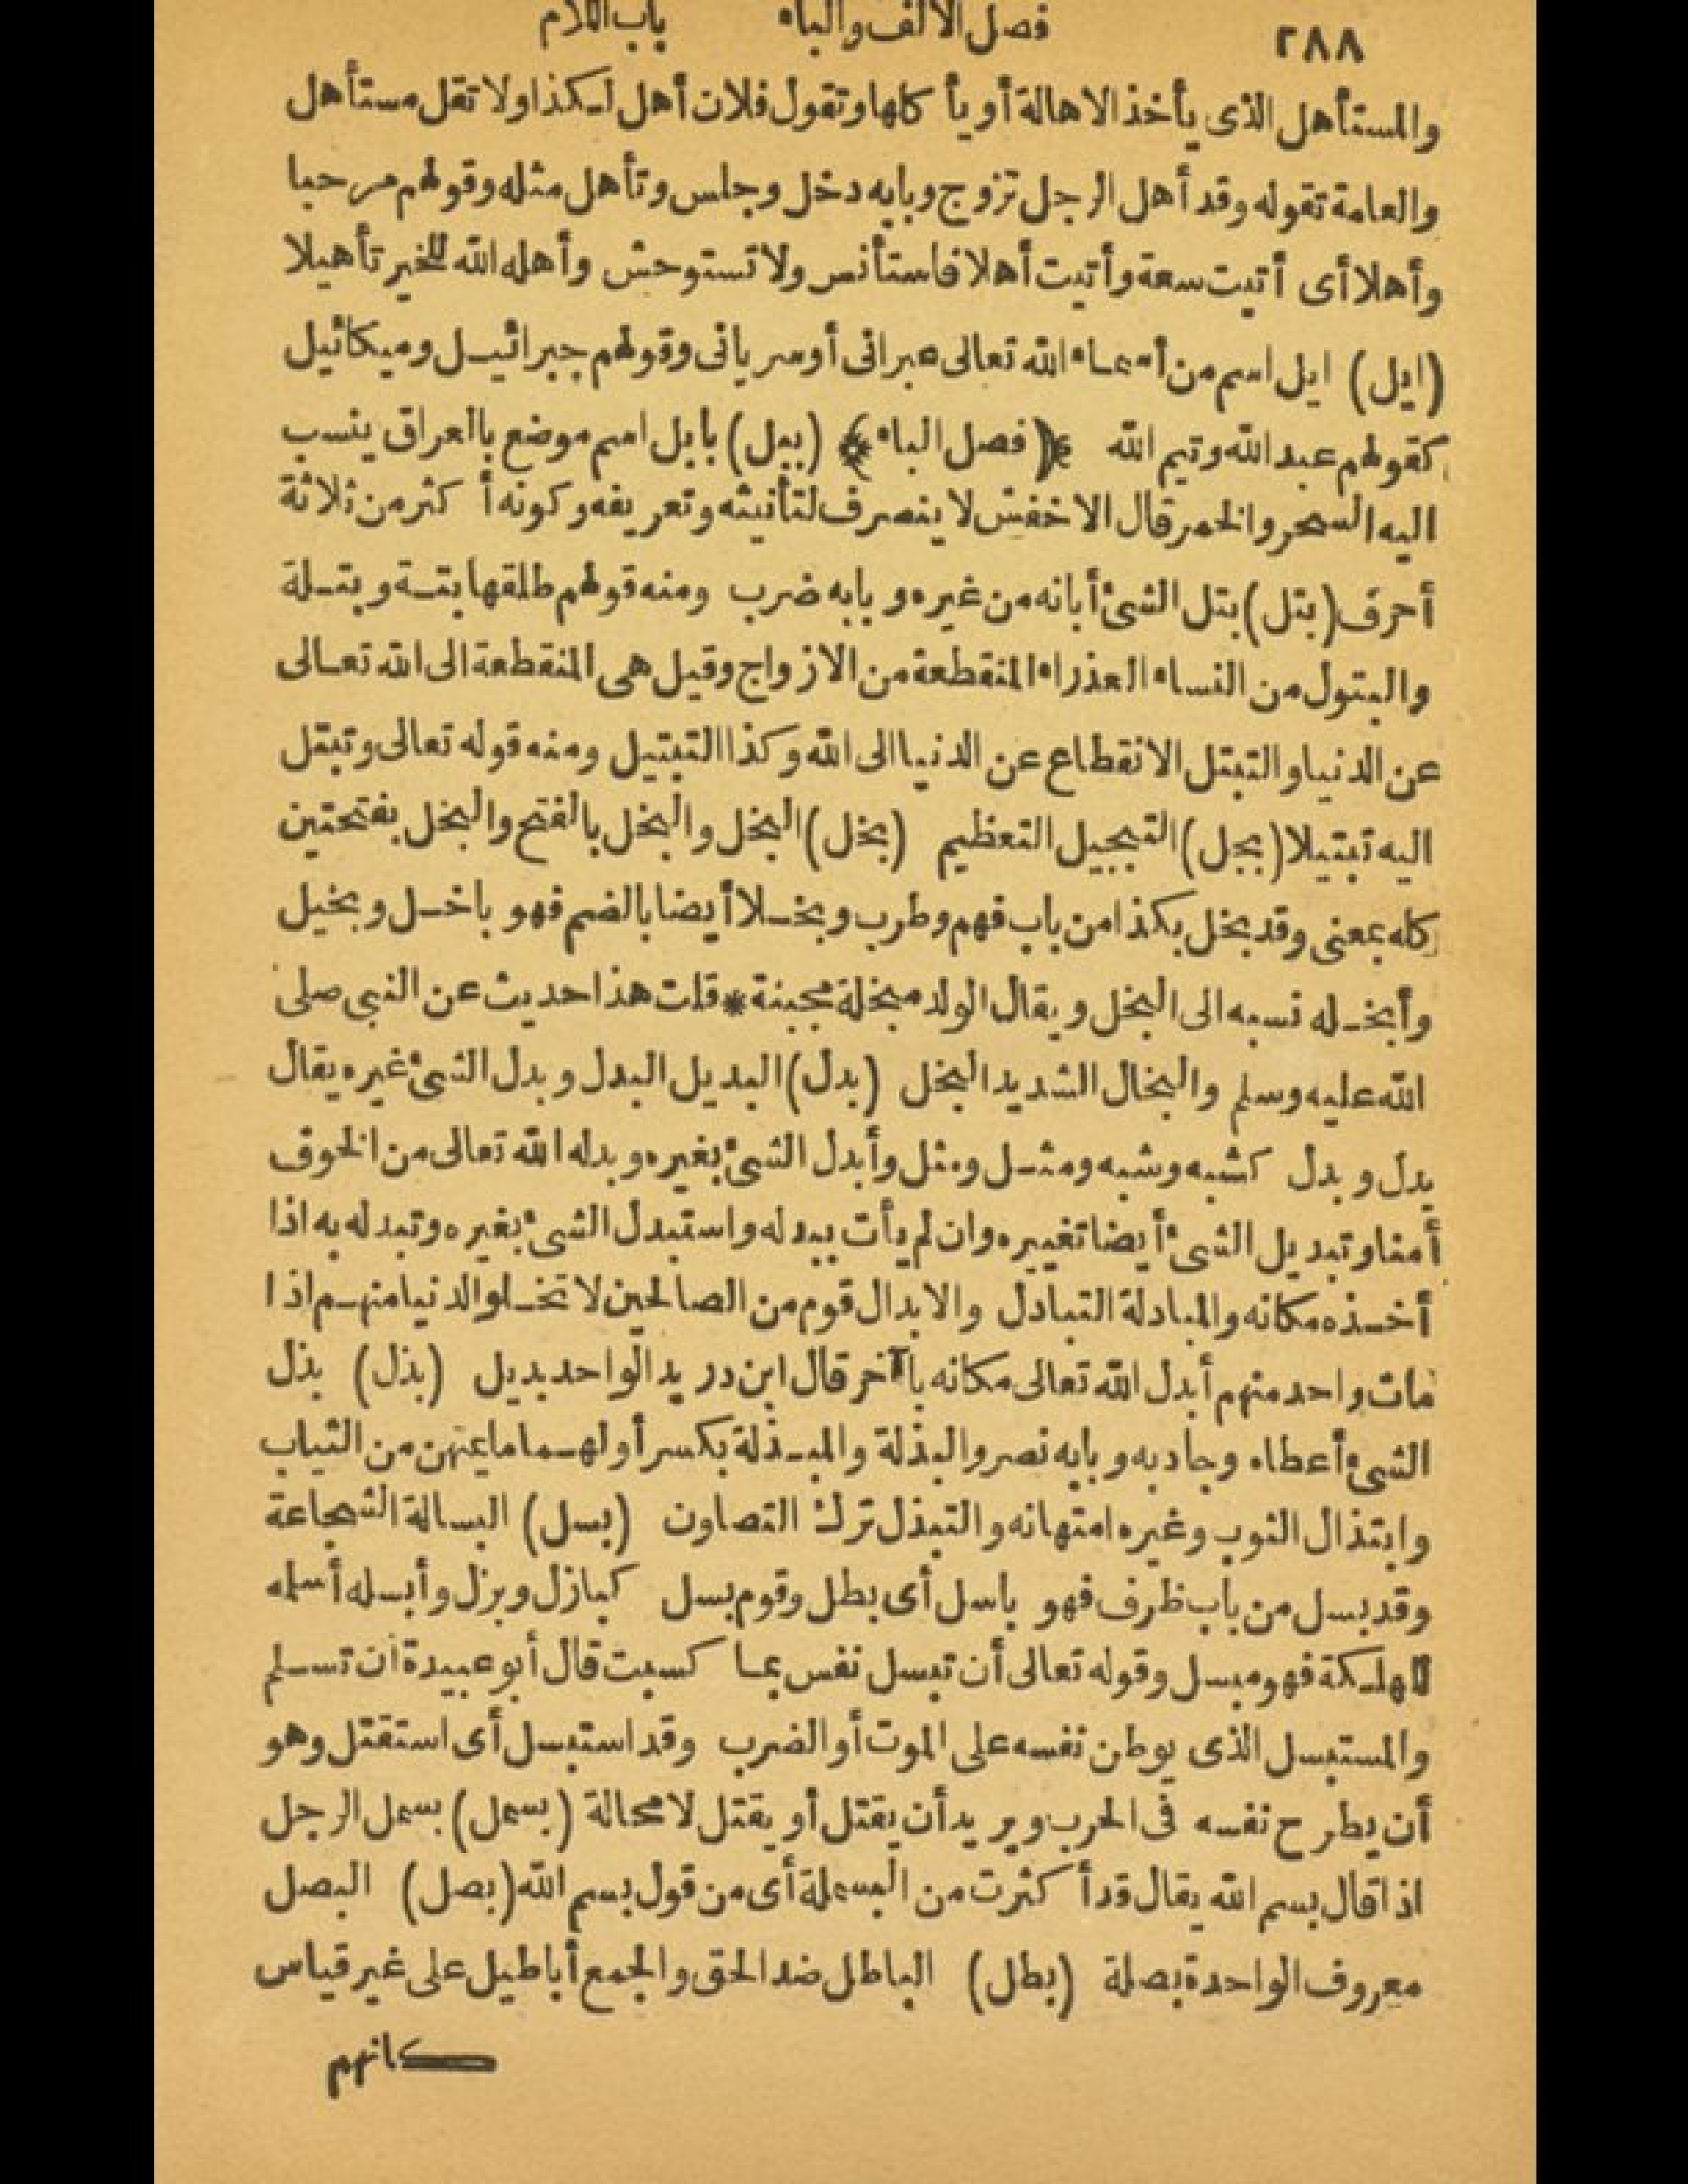 ٢٨٨ فصل الالف والباء باب اللام
والمستأهل الذى يأخذ الاهالة أو يأ كلها وتقول فلان أهل لكذا ولا تقل مستأهل
والعامة تقوله وقد أهل الرجل تزوج وبابه دخل وجلس وتأهل مثله وقولهم مرحبا
وأهلا أى أتيت سعة وأتيت أهلا فاستأنس ولا تستوحش وأهله الله للخير تأهيلا
(ايل) ايل اسم من أسماء الله تعالى عبرانى أو سريانى وقولهم جبرائيل وميكائيل
كقولهم عبد الله وتيم الله ﴿فصل الباء﴾ (ببل) بابل اسم موضع بالعراق ينسب
اليه السحر والخمر قال الاخفش لا ينصرف لتأنيثه وتعريفه وكونه أ كثر من ثلاثة
أحرف (بتل) بتل الشئ أبانه من غيره وبابه ضرب ومنه قولهم طلقها بتة وبتلة
والبتول من النساء العذراء المنقطعة من الازواج وقيل هى المنقطعة الى الله تعالى
عن الدنيا والتبتل الانقطاع عن الدنيا الى الله وكذا التبتيل ومنه قوله تعالى وتبتل
اليه تبتيلا (بجل) التبجيل التعظيم (بخل) البخل والبخل بالفتح والبخل بفتحتين
كله بمعنى وقد بخل بكذا من باب فهم وطرب وبخلا أيضا بالضم فهو باخل وبخيل
وأبخله نسبه الى البخل ويقال الولد مبخلة مجبنة * قلت هذا حديث عن النبى صلى
الله عليه وسلم والبخال الشديد البخل (بدل) البديل البدل وبدل الشئ غيره يقال
بدل وبدل كشبه وشبه ومثل ومثل وأبدل الشئ بغيره وبدله الله تعالى من الخوف
أمنا وتبديل الشئ أيضا تغييره وان لم يأت ببدله واستبدل الشئ بغيره وتبدله به اذا
أخذه مكانه والمبادلة التبادل والابدال قوم من الصالحين لا تخلو الدنيا منهم اذا
مات واحد منهم أبدل الله تعالى مكانه بآخر قال ابن دريد الواحد بديل (بذل) بذل
الشئ أعطاه وجاد به وبابه نصر والبذلة والمبذلة بكسر أولهما ما يمتهن من الثياب
وابتذال الثوب وغيره امتهانه والتبذل ترك التصاون (بسل) البسالة الشجاعة
وقد بسل من باب ظرف فهو باسل أى بطل وقوم بسل كبازل وبزل وأبسله أسلمه
للهلكة فهو مبسل وقوله تعالى أن تبسل نفس بما كسبت قال أبو عبيدة أن تسلم
والمستبسل الذى يوطن نفسه على الموت أو الضرب وقد استبسل أى استقتل وهو
أن يطرح نفسه فى الحرب ويريد أن يقتل أو يقتل لا محالة (بسمل) بسمل الرجل
اذا قال بسم الله يقال قد أ كثرت من البسملة أى من قول بسم الله (بصل) البصل
معروف الواحدة بصلة (بطل) الباطل ضد الحق والجمع أباطيل على غير قياس
كانهم